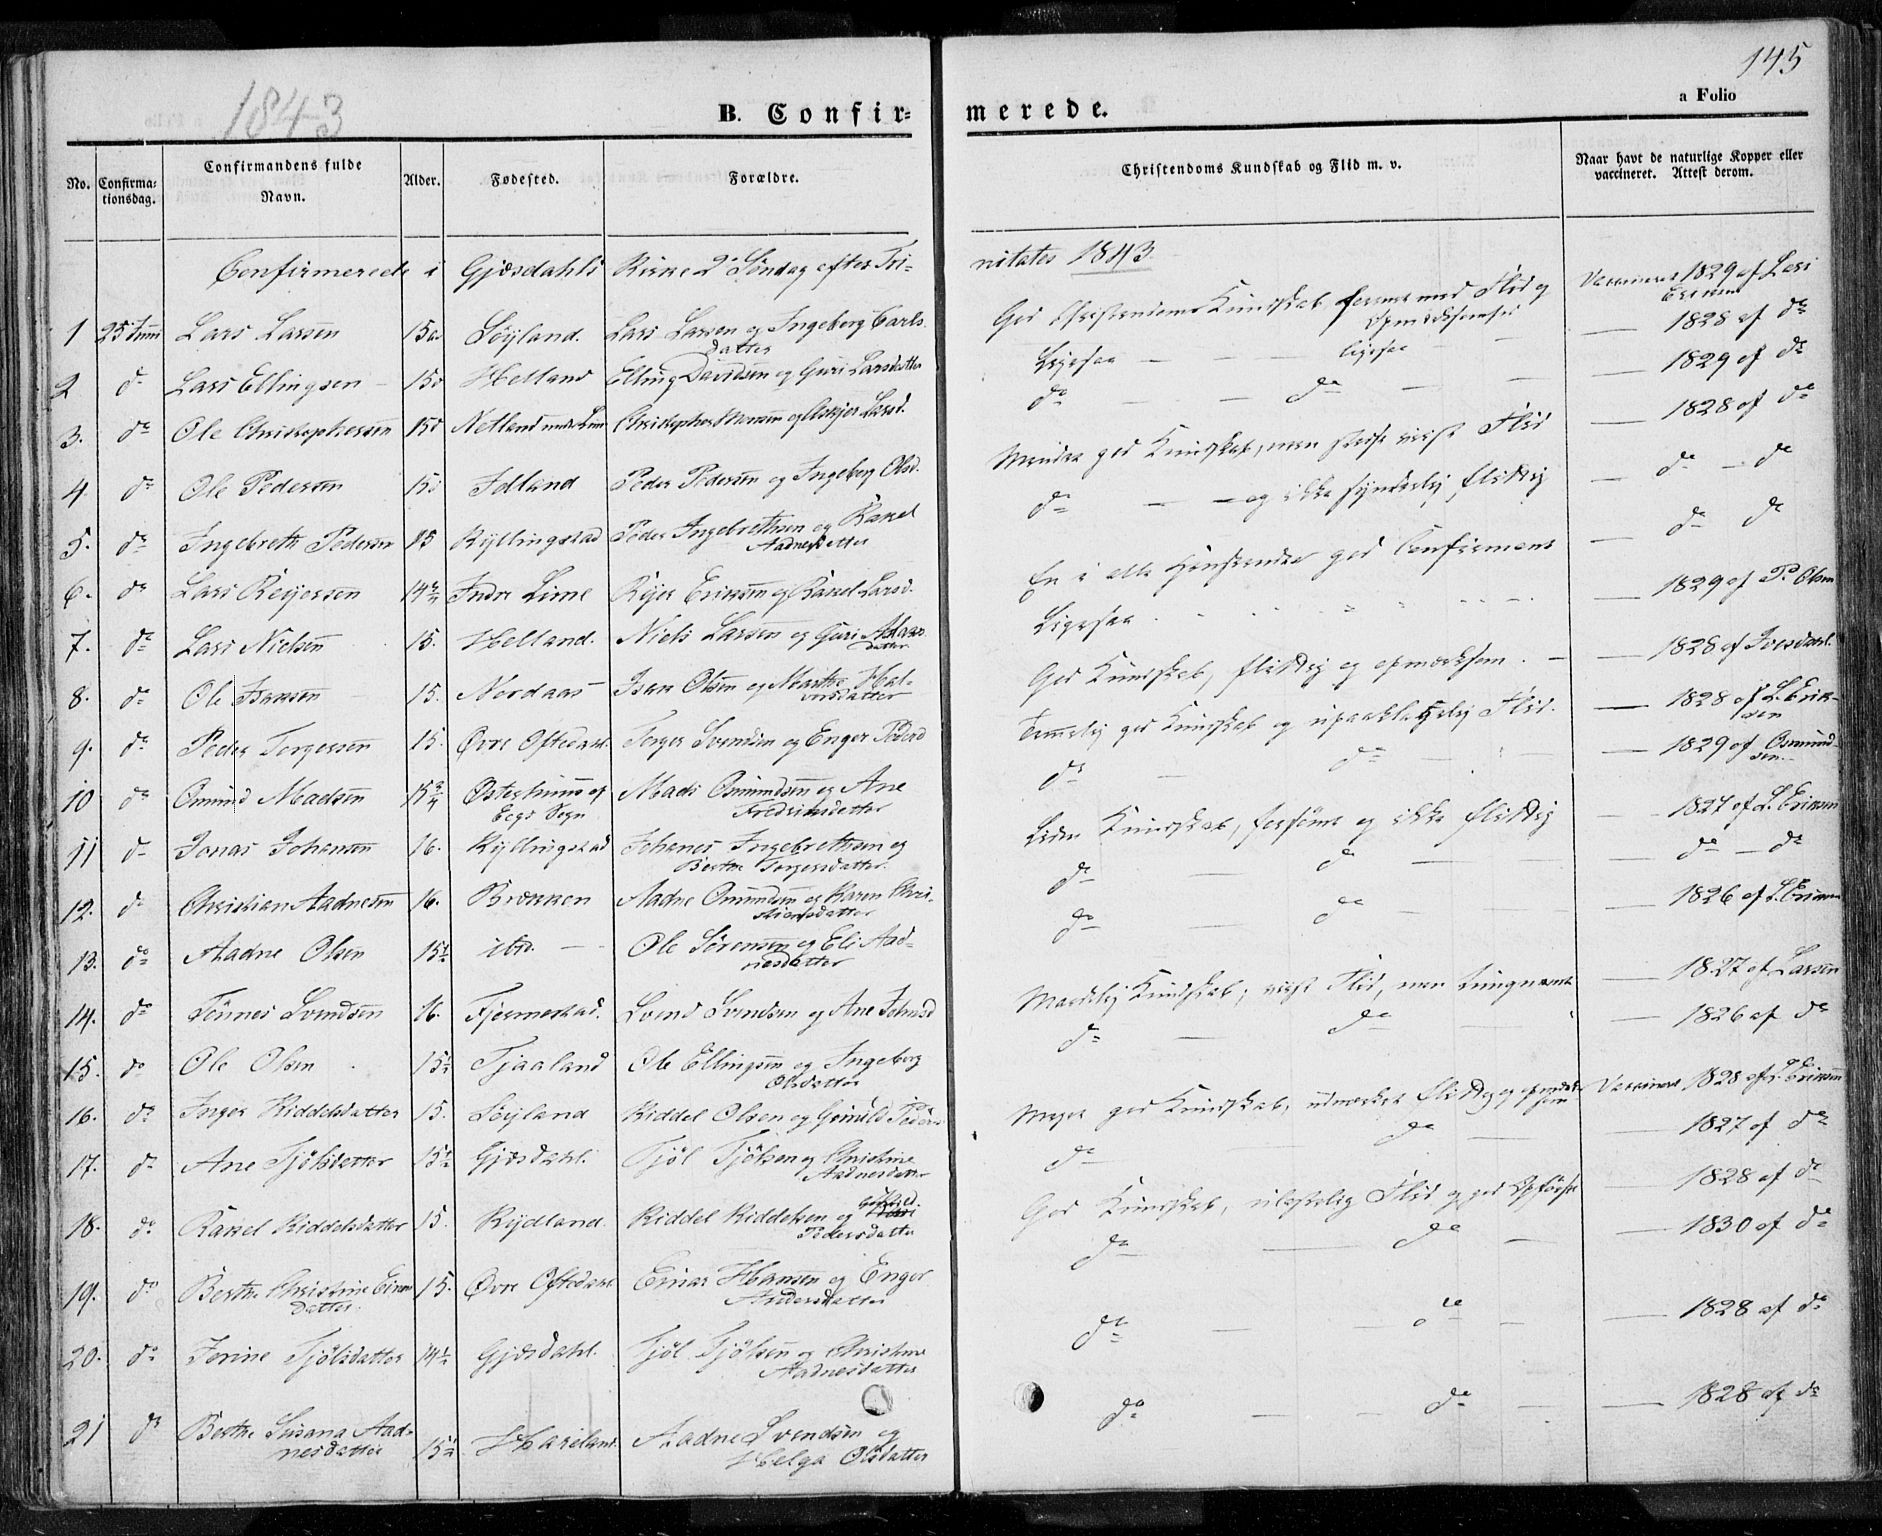 1843
145
a Folio
B. Confir= merede.
No.
Confirma=
tionsdag.
Confirmandens fulde
Navn.
Alder.
Fødested.
Forældre.
Christendoms Kundskab og Flid m. v.
Naar havt de naturlige Kopper eller
vaccineret. Attest derom.
Confirmerede i Gjæsdahls Kirke 2' Søndag efter Tri-
nitates 1843
1 25 Juni Lars Larsen 15 Løyland. Lars Larsen og Ingeborg Carls
datter
God Christendoms Kundskab forenet med Flid og
Opmærksomhed
Vaccineret 1829 af Lars
Eriksen
2 do Lars Ellingsen 15 Helland Elling Davidsen og Guri Larsdatter
Ligesaa — — — ligesaa — — 1828 af do
3. do Ole Christophersen 15 Netland Christopher og Larsd.
do — — do — — 1829 af do
4. do Ole Pedersen 15 Idland Peder Pedersen og Ingeborg Olsd.
Mindre god Kundskab, men Flid — 1828 af do
5. do Ingebreth Pedersen 15 Kyllingstad Peder Ingebrethsen og Rakel
Aadnesdatter
do — — og ikke synderlig flittig — do — do
6. do Lars Reiersen 14 Indre Lime Rejer Eriksen og Rakel Larsd.
En i alle Henseender god Confirmant — do do
7. do Lars Nielsen 15. Helland. Niels Larsen og Guri
datter
Ligesaa — 1829 af P. Olsen
8. do Ole Isaksen 15. Nordaas Isak Olsen og Marthe Hal-
vorsdatter
God Kundskab, flittig og opmærksom. — 1828 af
9. do Peder Torgersen 15. Øvre Oftedahl. Torger Svendsen og Enger Pedersd
Temmelig god Kundskab og upaaklagelig Flid. — 1828 af L. Erik-
sen
10 do Omund Madsen 15 3/4 af Mads Osmundsen og Ane
Eegs Sogn Fredriksdatter
do — do — 1829 af Osmund-
sen
11 do Jonas Johansen 16. Kyllingstad Johanes Ingebrethsen og
Berthe Torgersdatter.
Liden Kundskab, forsømt og ikke flittig — 1827 af L. Eriksen
12. do Christian Aadnesen 16. Brækken Aadne Omundsen og Karen Chri-
stiansdatter
do — do — do — do
13. do Aadne Olsen 15 1/2 ibid. — Ole Sørensen og Eli Aad-
nesdatter
do — do — 1826 af L. Eriksen
14. do Tønnes Svendsen 16. Fjermestad. Svend Svendsen og Ane Johnsd
Maadelig Kundskab; Flid, men tungnem — 1827 af Larsen
15. do Ole Olsen 15 1/2 Tjaaland Ole Ellingsen og Ingeborg
Olsdatter
do — do — 1826 af do
16. do Inger Riddelsdatter 15. Løyland Riddel Olsen og Peders
Meget god Kundskab, udmærket flittig og opmærk-
som Vaccineret 1828 af L. Eriksen
17. do Ane Tjølsdatter 15 1/2 Gjæsdahl. Tjøl Tjølsen og Christine
Aadnesdatter
do — do — 1827 af do
18. do Rakel Riddelsdatter 15. Rydland. Riddel Riddelsen og
Pedersdatter
God Kundskab, ulastelig Flid og god Opførsel — 1828 af do
19. do Berthe Christine Einars
datter 15. Øvre Oftedahl. Einar Hansen og Enger
Andersdatter
do — do — 1830 af do
20. do Jorine Tjølsdatter 14 1/2 Gjæsdahl. Tjøl Tjølsen og Christine
Aadnesdatter
do — — do — 1828 af do
21 do Berthe Susana Aad-
nesdatter 15 1/2 Haaland. Aadne Svendsen og
Helga Olsdatter
do — — do — 1828 af do